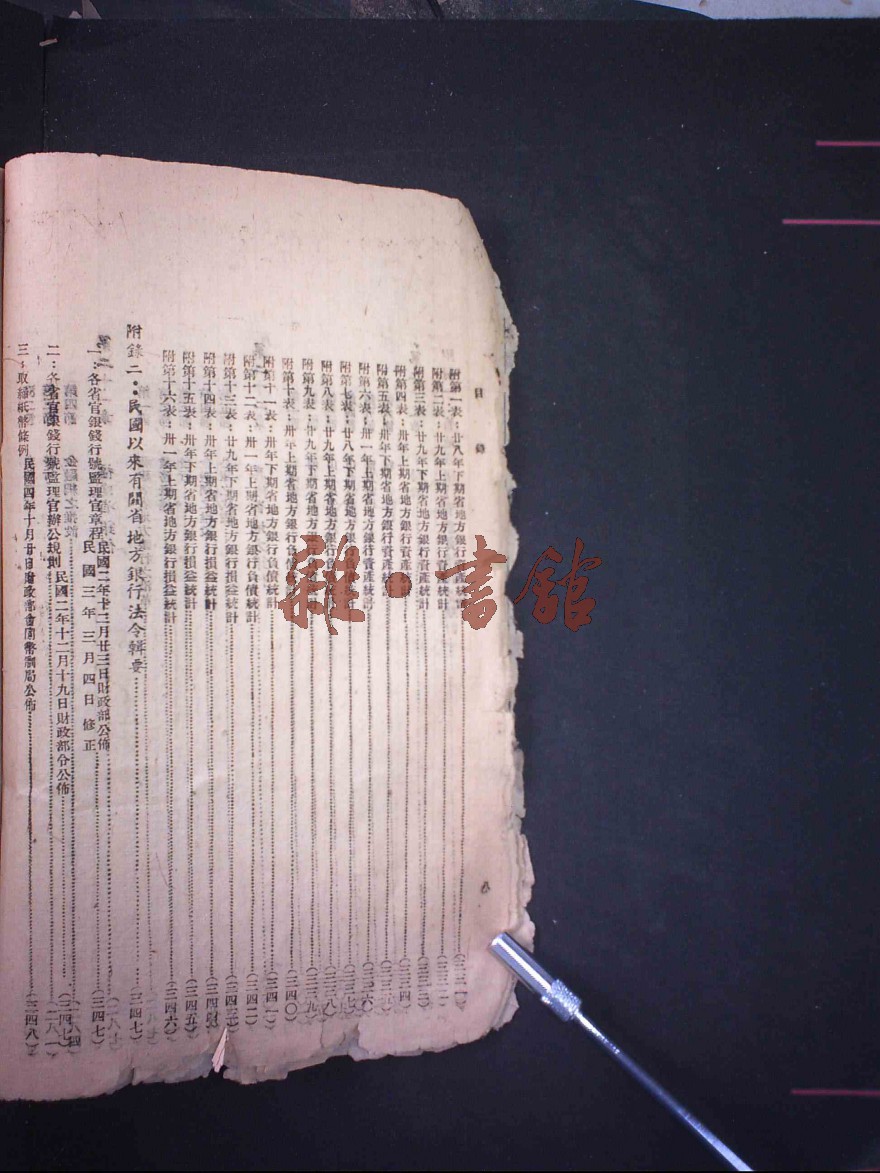 目錄
附第一表：廿八年下期省地方銀行資產統計
附第二表：廿九年上期省地方銀行資產統計
附第三表：廿九年下期省地方銀行資產統計
附第四表：卅年上期省地方銀行資產統計
附第五表：卅年下期省地方銀行資產統計
附第六表：卅一年上期省地方銀行資產統計
附第七表：廿八年下期省地方銀行負債統計
附第八表：廿九年上期省地方銀行負債統計
附第九表：廿九年下期省地方銀行負債統計（二三九）
附第十表：卅年上期省地方銀行負債統計（二四〇）
附第十一表：卅年下期省地方銀行負債統計（二四一）
附第十二表：卅一年上期省地方銀行負債統計（二四二）
附第十三表：廿九年下期省地方銀行損益統計（二四三）
附第十四表：卅年上期省地方銀行損益統計
附第十五表：卅年下期省地方銀行損益統計（二四五）
附第十六表：卅一年上期省地方銀行損益統計（二四六）
附錄二：民國以來有關省地方銀行法令輯要（二四七）
一：各省官銀錢行號監理官章程民國二年十二月廿三日財政部公佈 民國三年三月四日修正（二四七）
二：各省官銀錢行號監理官辦公規則民國二年十二月十九日財政部令公佈（二四七）
三：取締紙幣條例民國四年十月廿日財政部會同幣制局公佈（二四八）
雜·書館